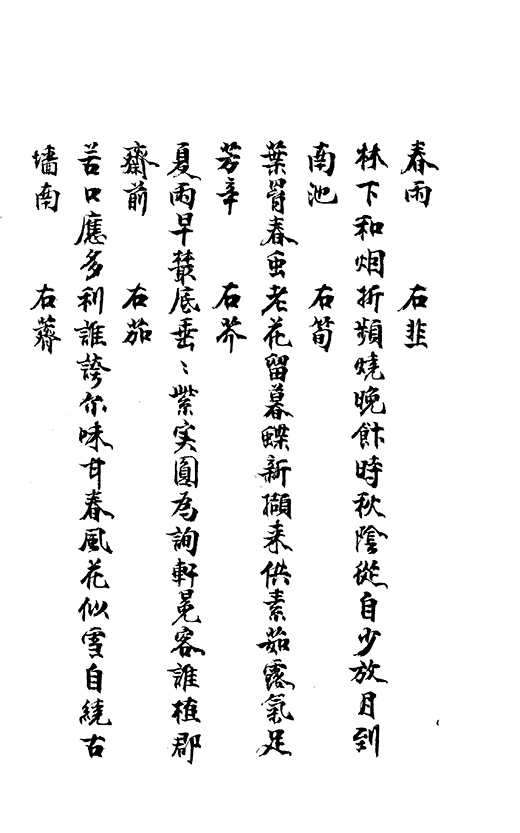 春雨　右韭
林下和烟折頻燒晚飰時秋陰從自少放月到
南池　右筍
葉骨春虫老花留暮蝶新擷来供素茹露氣足
芳辛　右芥
夏雨早藂底垂〻紫实圓為詢軒冕客誰植郡
齋前　右茄
苦口應多利誰誇尔味甘春風花似雪自繞古
墻南　右薺